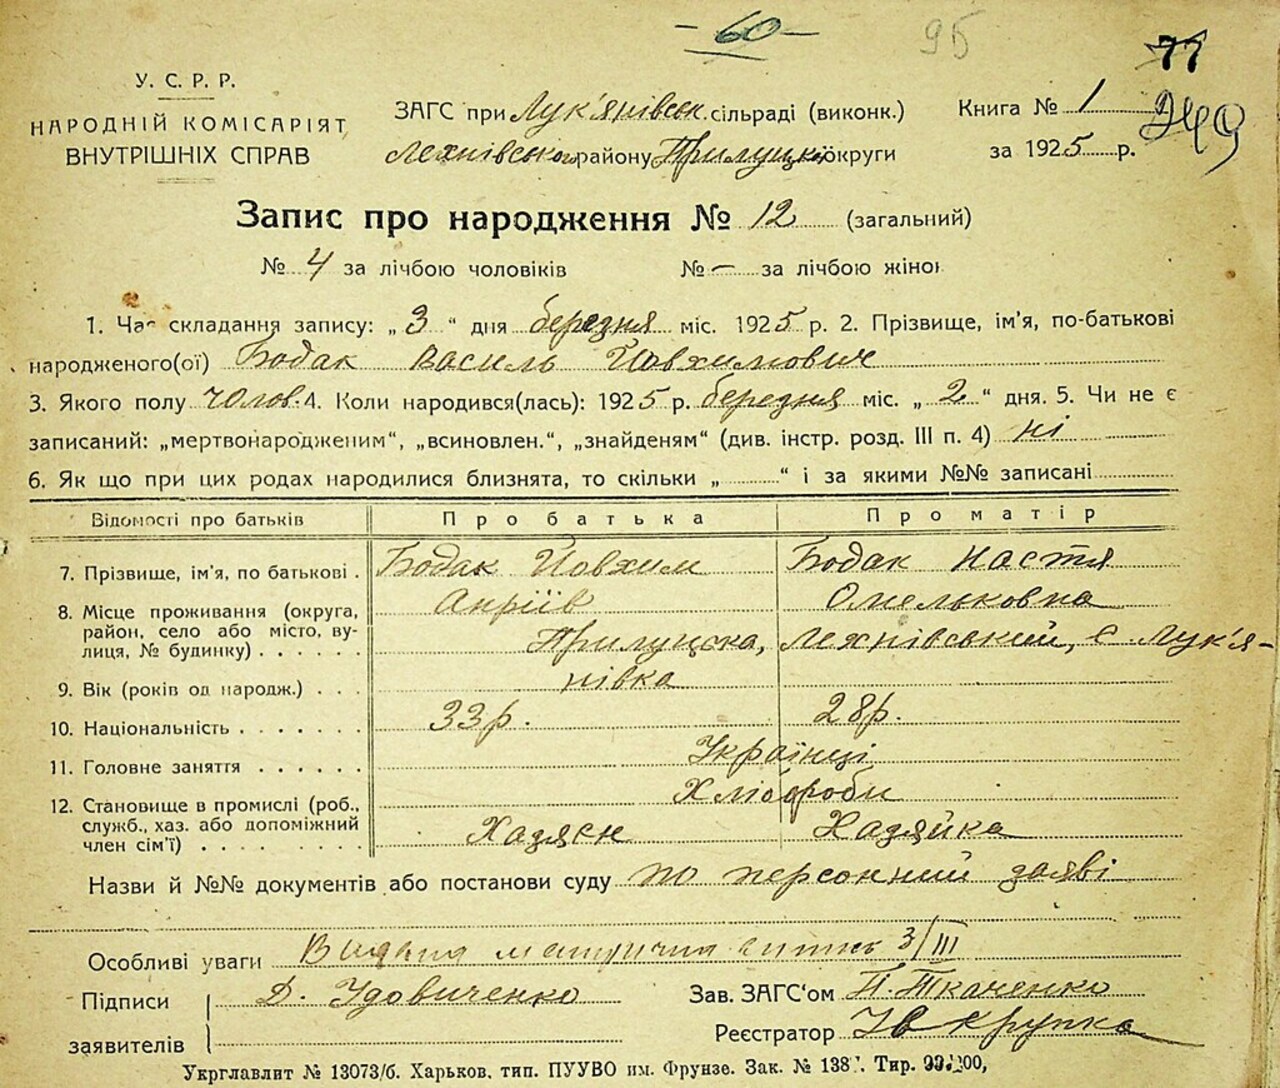 -60-
95
77
У. С. Р. Р.
НАРОДНІЙ КОМІСАРІЯТ
ВНУТРІШНІХ СПРАВ
ЗАГС при Лук'янівськ. сільраді (виконк.)
Лехнівського району Прилуцької округи
Книга № 1
за 1925 р.
Запис про народження № 12 (загальний)
№ 4 за лічбою чоловіків № — за лічбою жінок
1. Час складання запису: „ 3 “ дня березня міс. 1925 р. 2. Прізвище, ім'я, по-батькові
народженого(ої) Бодак Василь Йовхимович
3. Якого полу чолов. 4. Коли народився(лась): 1925 р. березня міс. „ 2 “ дня. 5. Чи не є
записаний: „мертвонародженим“, „всиновлен.“, „знайденям“ (див. інстр. розд. III п. 4) ні
6. Як що при цих родах народилися близнята, то скільки „ “ і за якими №№ записані
Відомості про батьків Про батька Про матір
7. Прізвище, ім'я, по батькові . Бодак Йовхим Бодак Настя
Анріїв Омельковна
8. Місце проживання (округа,
район, село або місто, ву-
лиця, № будинку) . . . . . . Прилуцька, Лехнівський, с. Лук'я-
нівка
9. Вік (років од народж.) . . . 33р. 28р.
10. Національність . . . . . . . Українці
11. Головне заняття . . . . . . Хлібороби
12. Становище в промислі (роб.,
служб., хаз. або допоміжний
член сім'ї) . . . . . . . . . Хазяєн Хазяйка
Назви й №№ документів або постанови суду по персонний заяві
Особливі уваги Видана метрична 3/III
Підписи Д. Удовиченко
заявителів
Зав. ЗАГС'ом П. Ткаченко
Реєстратор Ів Крупка
Укрглавлит № 13073/б. Харьков, тип. ПУУВО им. Фрунзе. Зак. № 138 . Тир.